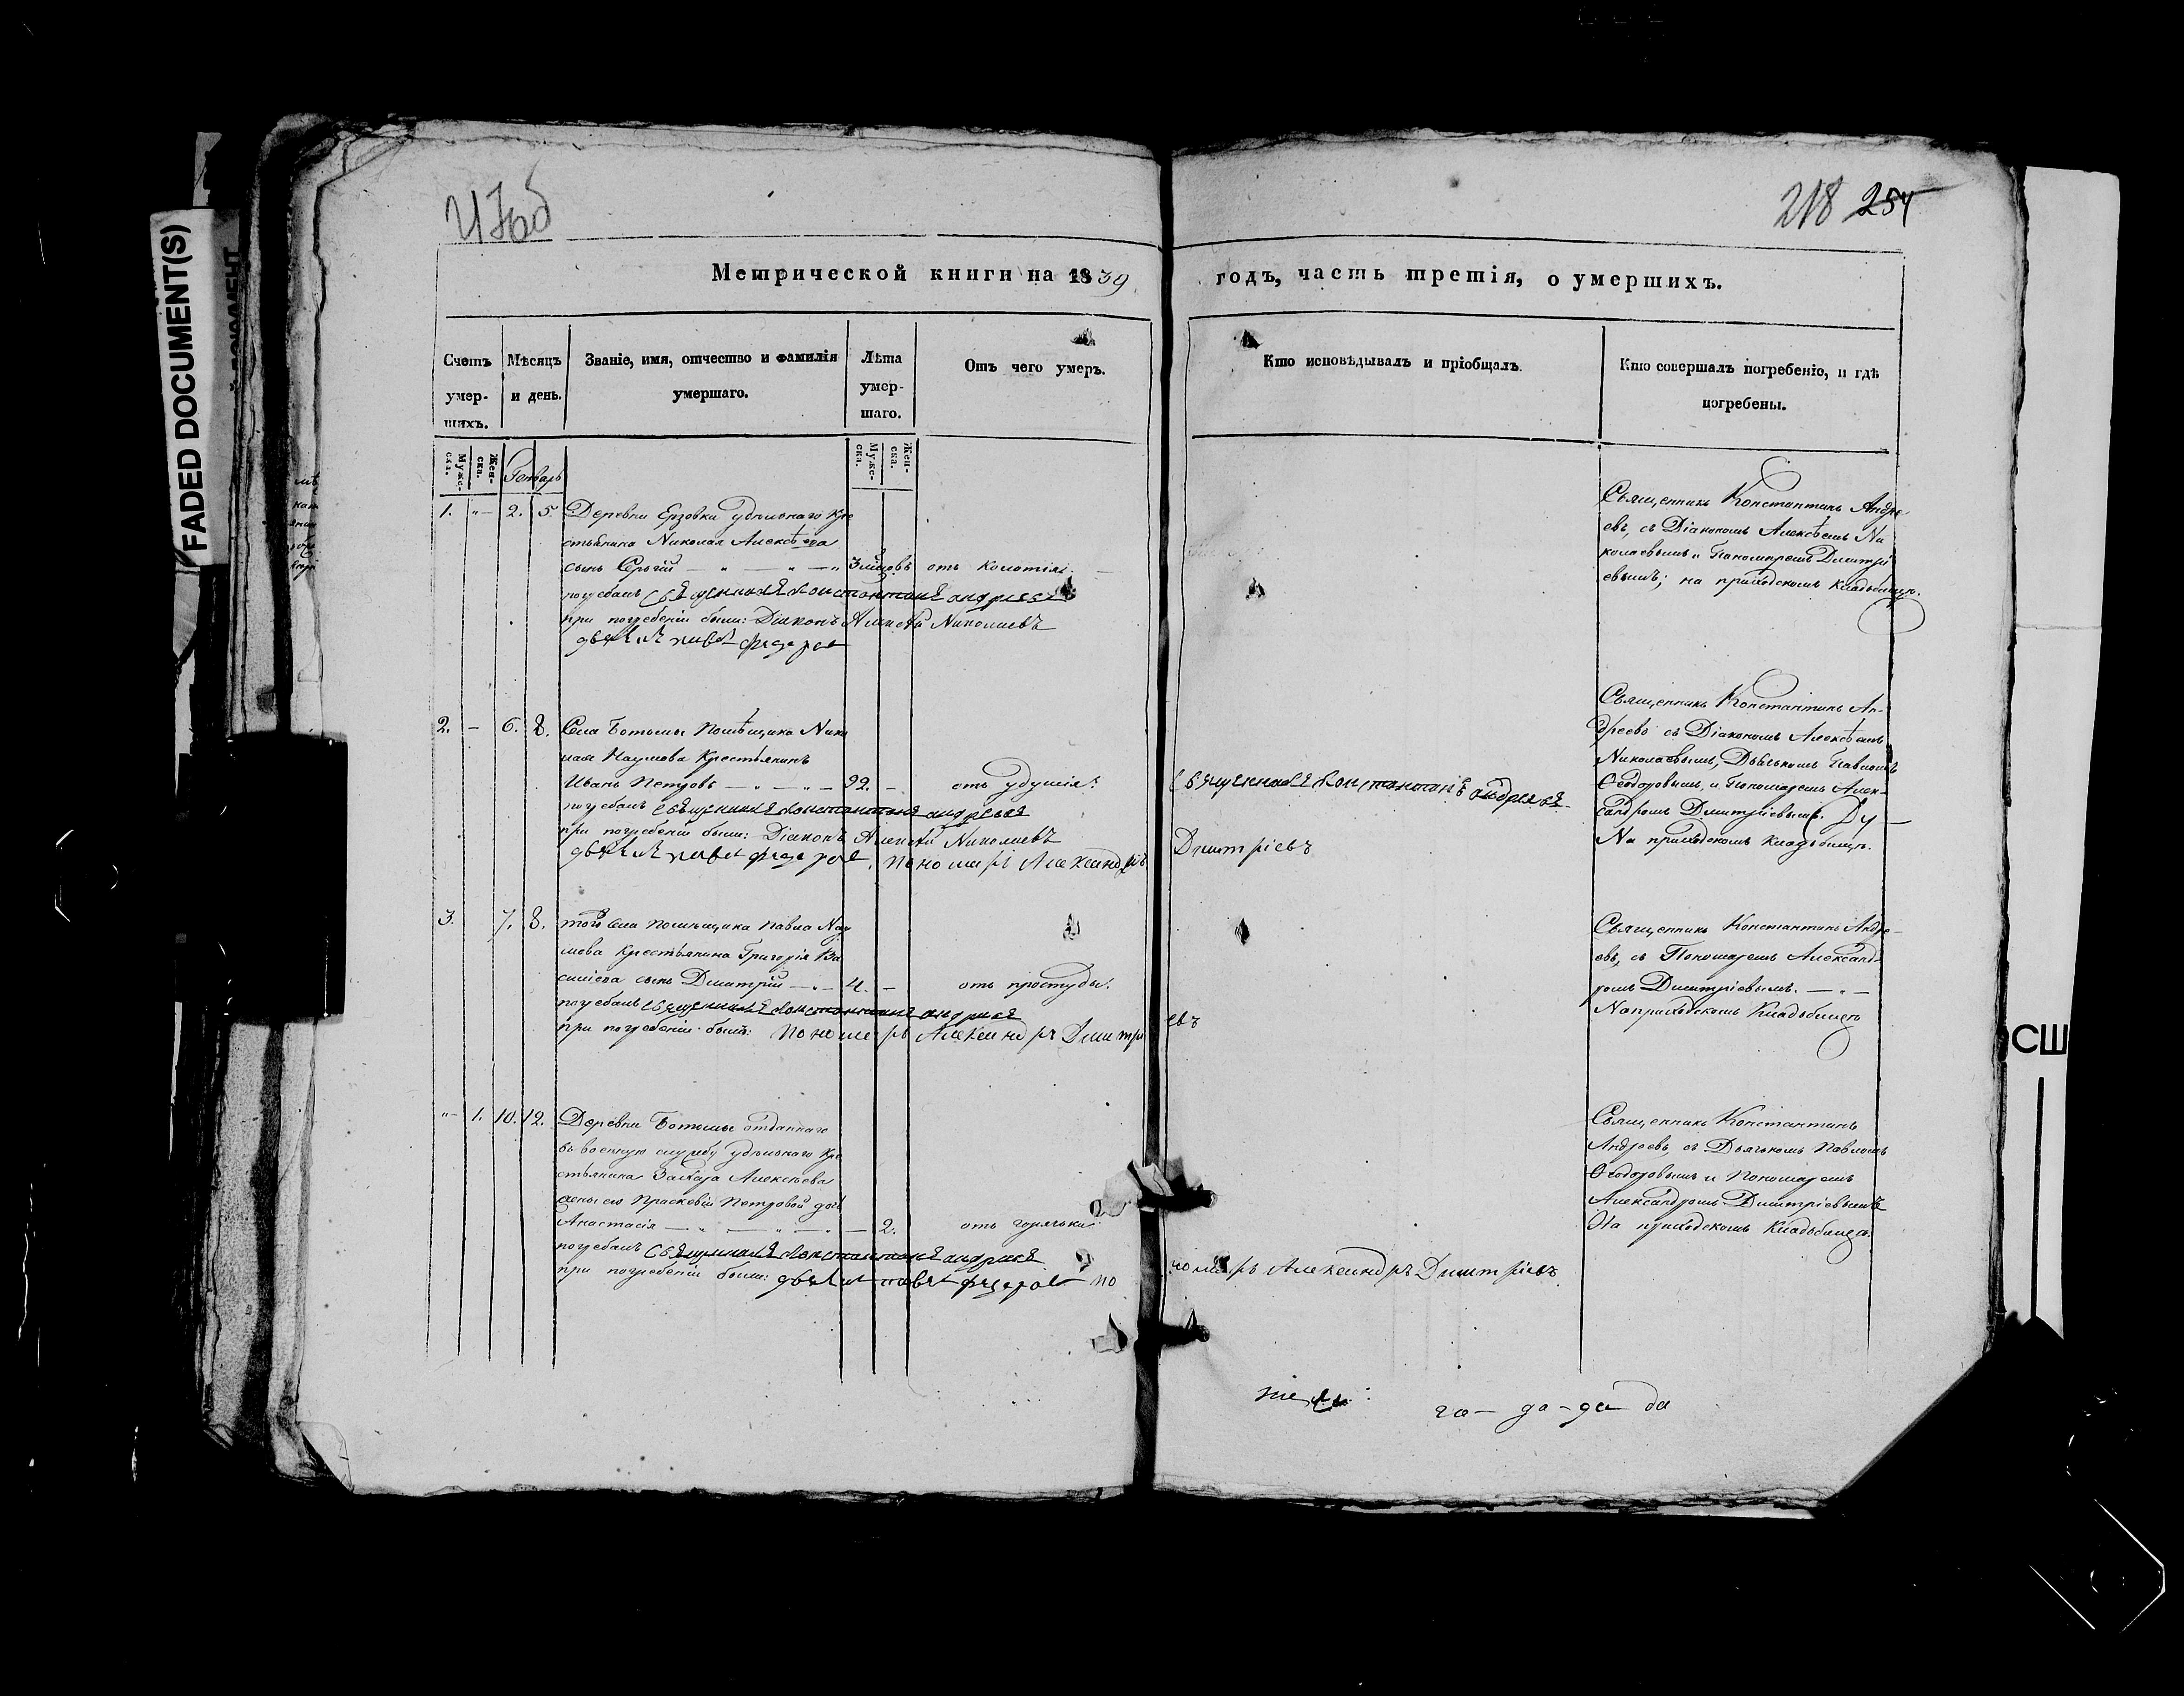 FADED DOCUMENT(S)
218 254
Метрической книги на 1839 годъ, часть третія, о умершихъ.
Счетъ умер-шихъ.
Мѣсяцъ и день.
Званіе, имя, отчество и фамилія умершаго.
Лѣта умер-шаго.
Отъ чего умеръ.
Кто исповѣдывалъ и пріобщалъ.
Кто совершалъ погребеніе, и гдѣ погребены.
Муже-ска. Жен-ска.
Генварь
Муже-ска. Жен-ска.
1. "- 2. 5. Деревни Ерзовки удѣльнаго Кре
стьянина Николая Алексѣева
сынъ Сергій — " — " — " 3 мцовъ отъ колотія.
погребалъ священникъ константинъ андреевъ
при погребеніи были: Діаконъ Алексѣй Николаевъ
дьячекъ павелъ федоровъ
Священникъ Константинъ Андре-
евъ, съ Діакономъ Алексѣемъ Ни
колаевымъ и Пономаремъ Димитрі
евымъ; на приходскомъ Кладбищѣ.
2. - 6. 8. Села Ботьмы Помѣщика Нико
лая Наумова Крестьянинъ
Иванъ Петровъ — " — " — 92. - отъ удушія.
священникъ константинъ андреевъ
погребалъ священникъ константинъ андреевъ
при погребеніи были: Діаконъ Алексѣй Николаевъ
дьячекъ павелъ федоровъ, пономарь Александръ Димитріевъ
Священникъ Константинъ Ан-
дреевъ съ Діакономъ Алексѣемъ
Николаевымъ, Дьячькомъ Павломъ
Ѳеодоровымъ, и Пономаремъ Алек-
сандромъ Димитріевымъ.
На приходскомъ кладбищѣ.
3. 7. 8. того Села помѣщика Павла Нау
мова Крестьянина Григорія Ва
силіева сынъ Димитрій — " — 4. - отъ простуды.
погребалъ священникъ константинъ андреевъ
при погребеніи былъ: пономарь Александръ Димитріевъ
Священникъ Константинъ Андре-
евъ, съ Пономаремъ Александ-
ромъ Димитріевымъ. — " —
На приходскомъ Кладбищѣ
"- 1. 10. 12. Деревни Ботьмы отданнаго
въ военную службу удѣльнаго Кре
стьянина Захара Алексѣева
жены его Прасковіи Петровой дочь
Анастасія — " — " — " — 2. отъ горячьки.
погребалъ священникъ константинъ андреевъ
при погребеніи были: дьячекъ павелъ федоровъ пономарь Александръ Димитріевъ
Священникъ Константинъ
Андреевъ, съ Дьячькомъ Павломъ
Ѳеодоровымъ и Пономаремъ
Александромъ Димитріевымъ
На приходскомъ Кладбищѣ.
га - да - да да
СШ